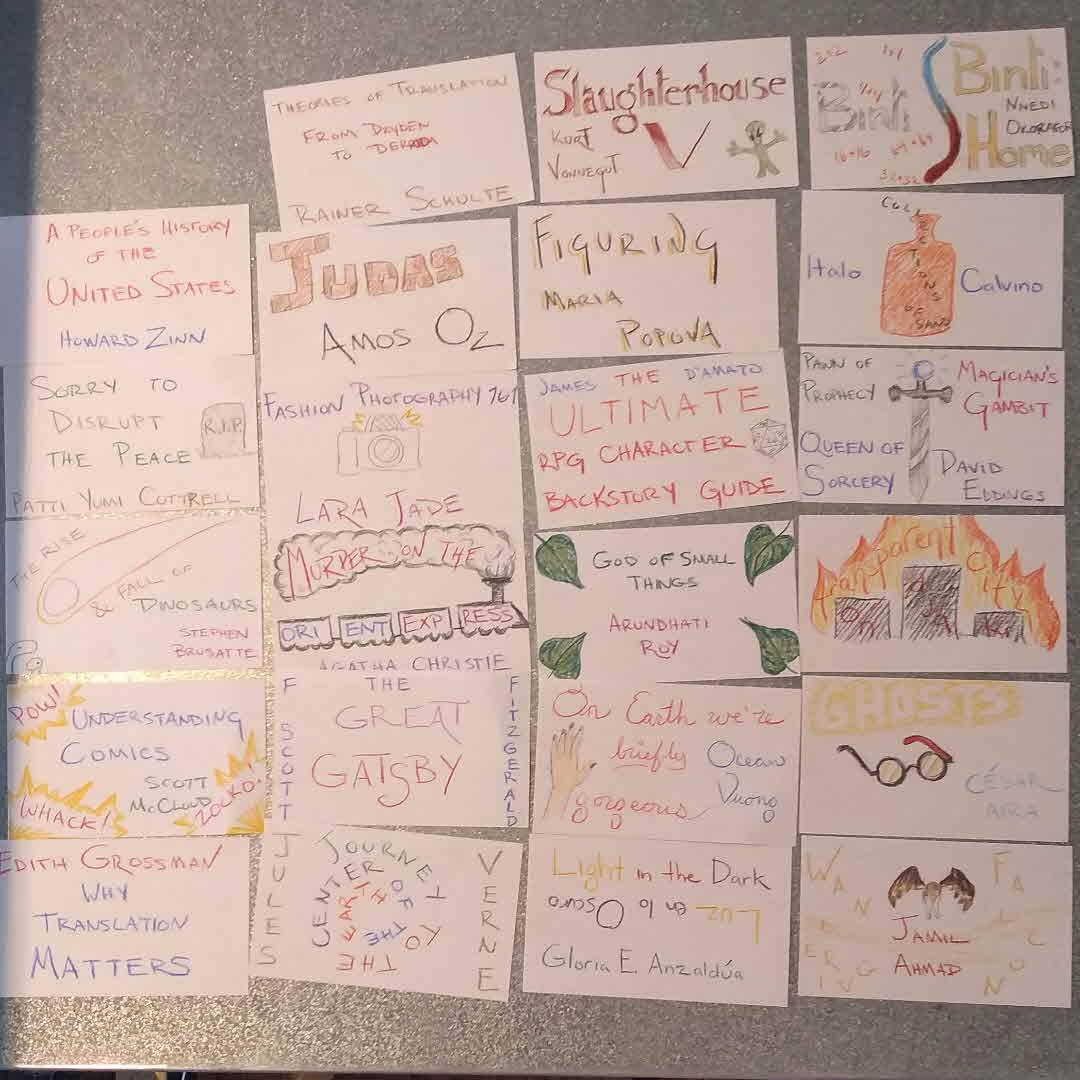 THEORIES OF TRANSLATION
FROM DRYDEN
TO DERRIDA
RAINER SCHULTE
Slaughterhouse
V
KURT
VONNEGUT
2=2
4+4
16+16
64+64
32+32
Binti
Binti:
Home
NNEDI
OKORAFOR
A PEOPLE'S HISTORY
OF THE
UNITED STATES
HOWARD ZINN
JUDAS
AMOS OZ
FIGURING
MARIA
POPOVA
COLLECTIONS OF SAND
Italo Calvino
SORRY TO
DISRUPT
THE PEACE
R.I.P.
PATTI YUMI COTTRELL
FASHION PHOTOGRAPHY 101
LARA JADE
JAMES THE D'AMATO
ULTIMATE
RPG CHARACTER
BACKSTORY GUIDE
PAWN OF
PROPHECY
QUEEN OF
SORCERY
MAGICIAN'S
GAMBIT
DAVID
EDDINGS
THE RISE
& FALL OF
DINOSAURS
STEPHEN
BRUSATTE
MURDER ON THE
ORI ENT EXP RESS
AGATHA CHRISTIE
GOD OF SMALL
THINGS
ARUNDHATI
ROY
Transparent City
POW!
UNDERSTANDING
COMICS
SCOTT
McCLOUD
WHACK!
ZOCKO!
F SCOTT
THE
GREAT
GATSBY
FITZGERALD
On Earth we're
briefly
gorgeous
Ocean
Vuong
GHOSTS
CÉSAR
AIRA
EDITH GROSSMAN
WHY
TRANSLATION
MATTERS
JULES
JOURNEY TO THE
CENTER OF
THE EARTH
VERNE
Light in the Dark
Luz en lo Oscuro
Gloria E. Anzaldúa
WANDERING
FALCON
JAMIL
AHMAD